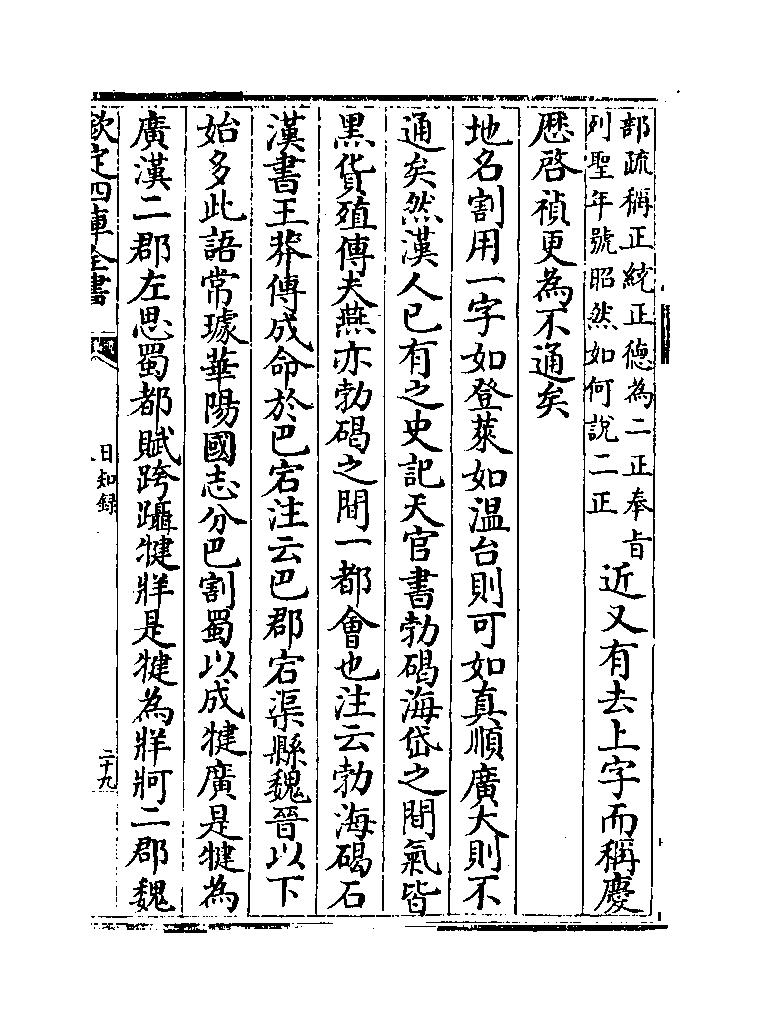 部疏稱正統正德為二正奉旨
列聖年號昭然如何說二正
近又有去上字而稱慶
厯啓禎更為不通矣
地名割用一字如登萊如温台則可如真順廣大則不
通矣然漢人已有之史記天官書勃碣海岱之間氣皆
黑貨殖傳夫燕亦勃碣之間一都會也注云勃海碣石
漢書王莽傳成命於巴宕注云巴郡宕渠縣魏晉以下
始多此語常璩華陽國志分巴割蜀以成犍廣是犍為
廣漢二郡左思蜀都賦跨躡犍牂是犍為牂牁二郡魏
欽定四庫全書
日知録
二十九